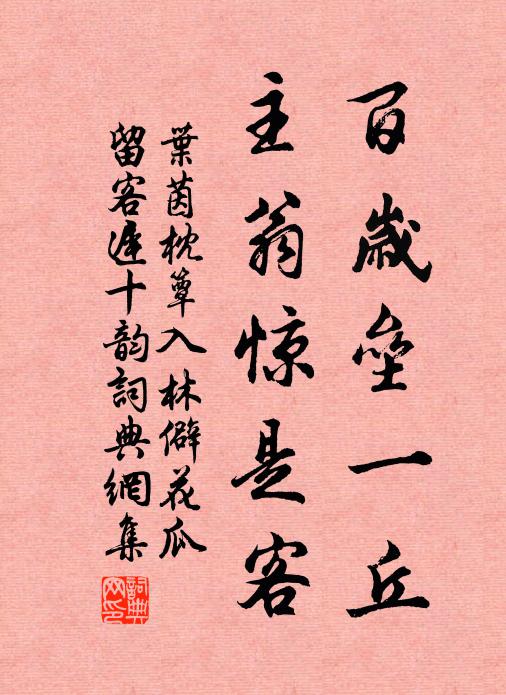 百歲垒一丘
主翁惊是客
葉茵枕簟入林僻花瓜
留客遲十韵詞典網集
詞典
网印